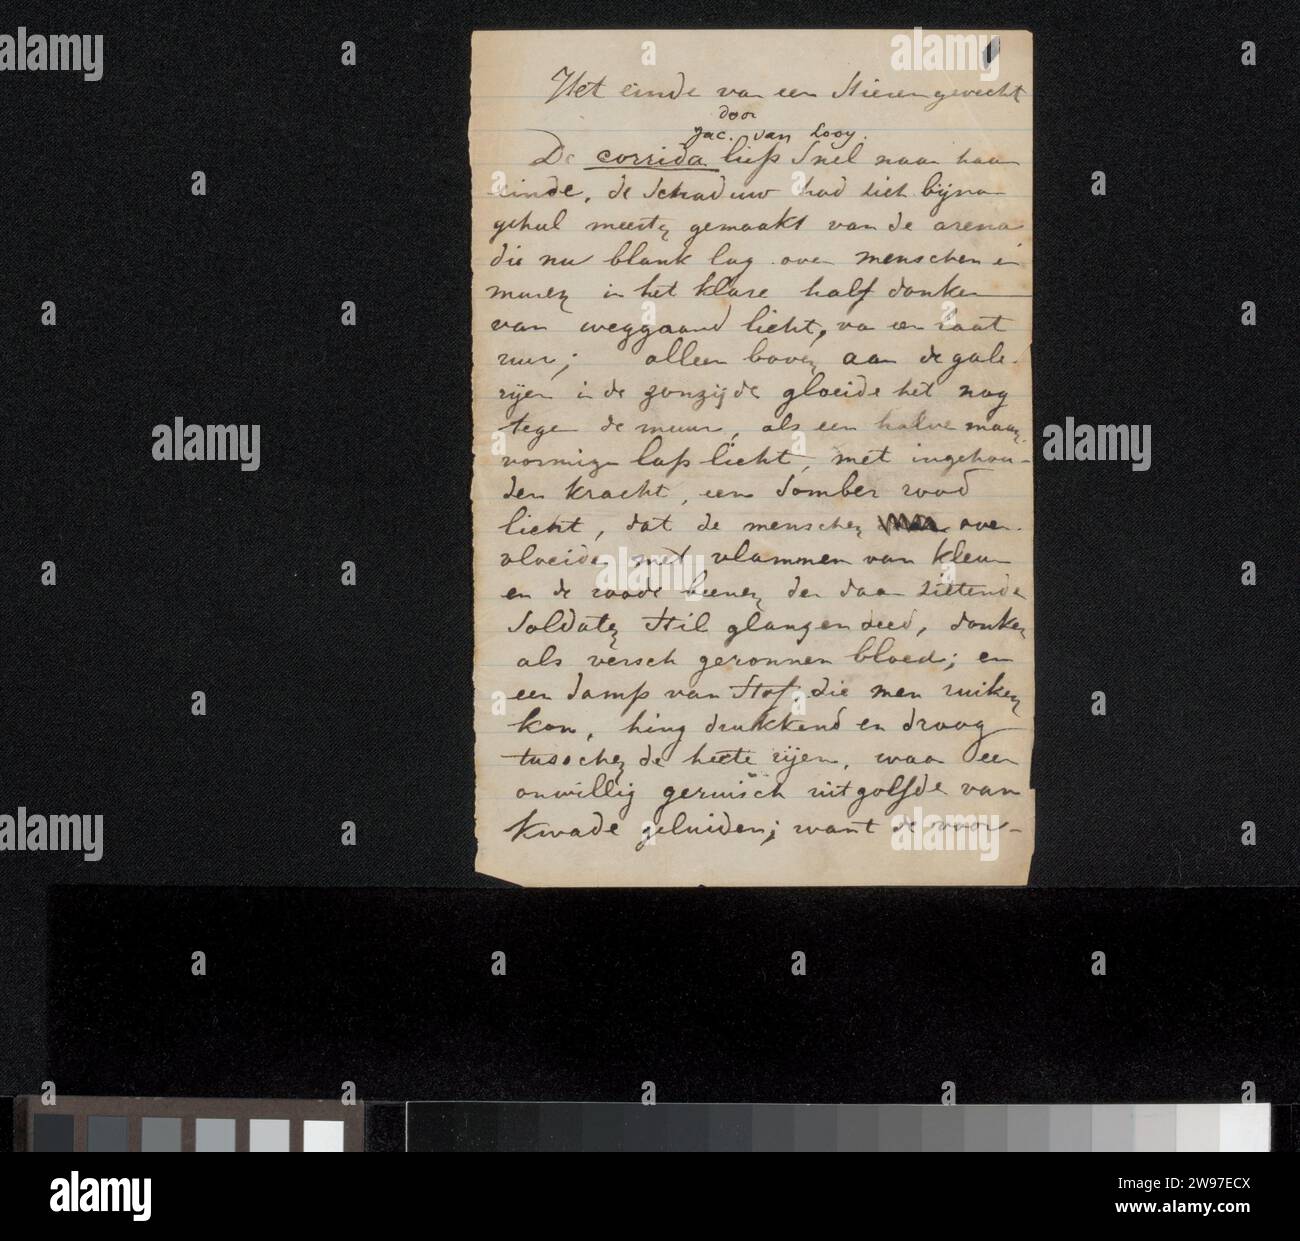 Het einde van een Stierengevecht
door
Jac. van Looy.
De corrida liep snel naar haar
einde, de schaduw had zich bijna
geheel meester gemaakt van de arena
die nu blank lag over menschen en
muren in het klare half donker
van weggaand licht, va een laat
uur; alleen boven aan de gale-
rijen in de zonzijde gloeide het nog
tegen de muur, als een halve maan-
vormige lap licht, met ingehou-
den kracht, een somber rood
licht, dat de menschen over-
vloeide met vlammen van kleur
en de roode beenen der daar zittende
soldaten stil glanzen deed, donker
als versch geronnen bloed; en
een damp van stof, die men ruiken
kon, hing drukkend en droog
tusschen de heete rijen, waar een
onwillig geruisch uitgolfde van
kwade geluiden; want de voor-
alamy
Image ID: 2W97ECX
www.alamy.com